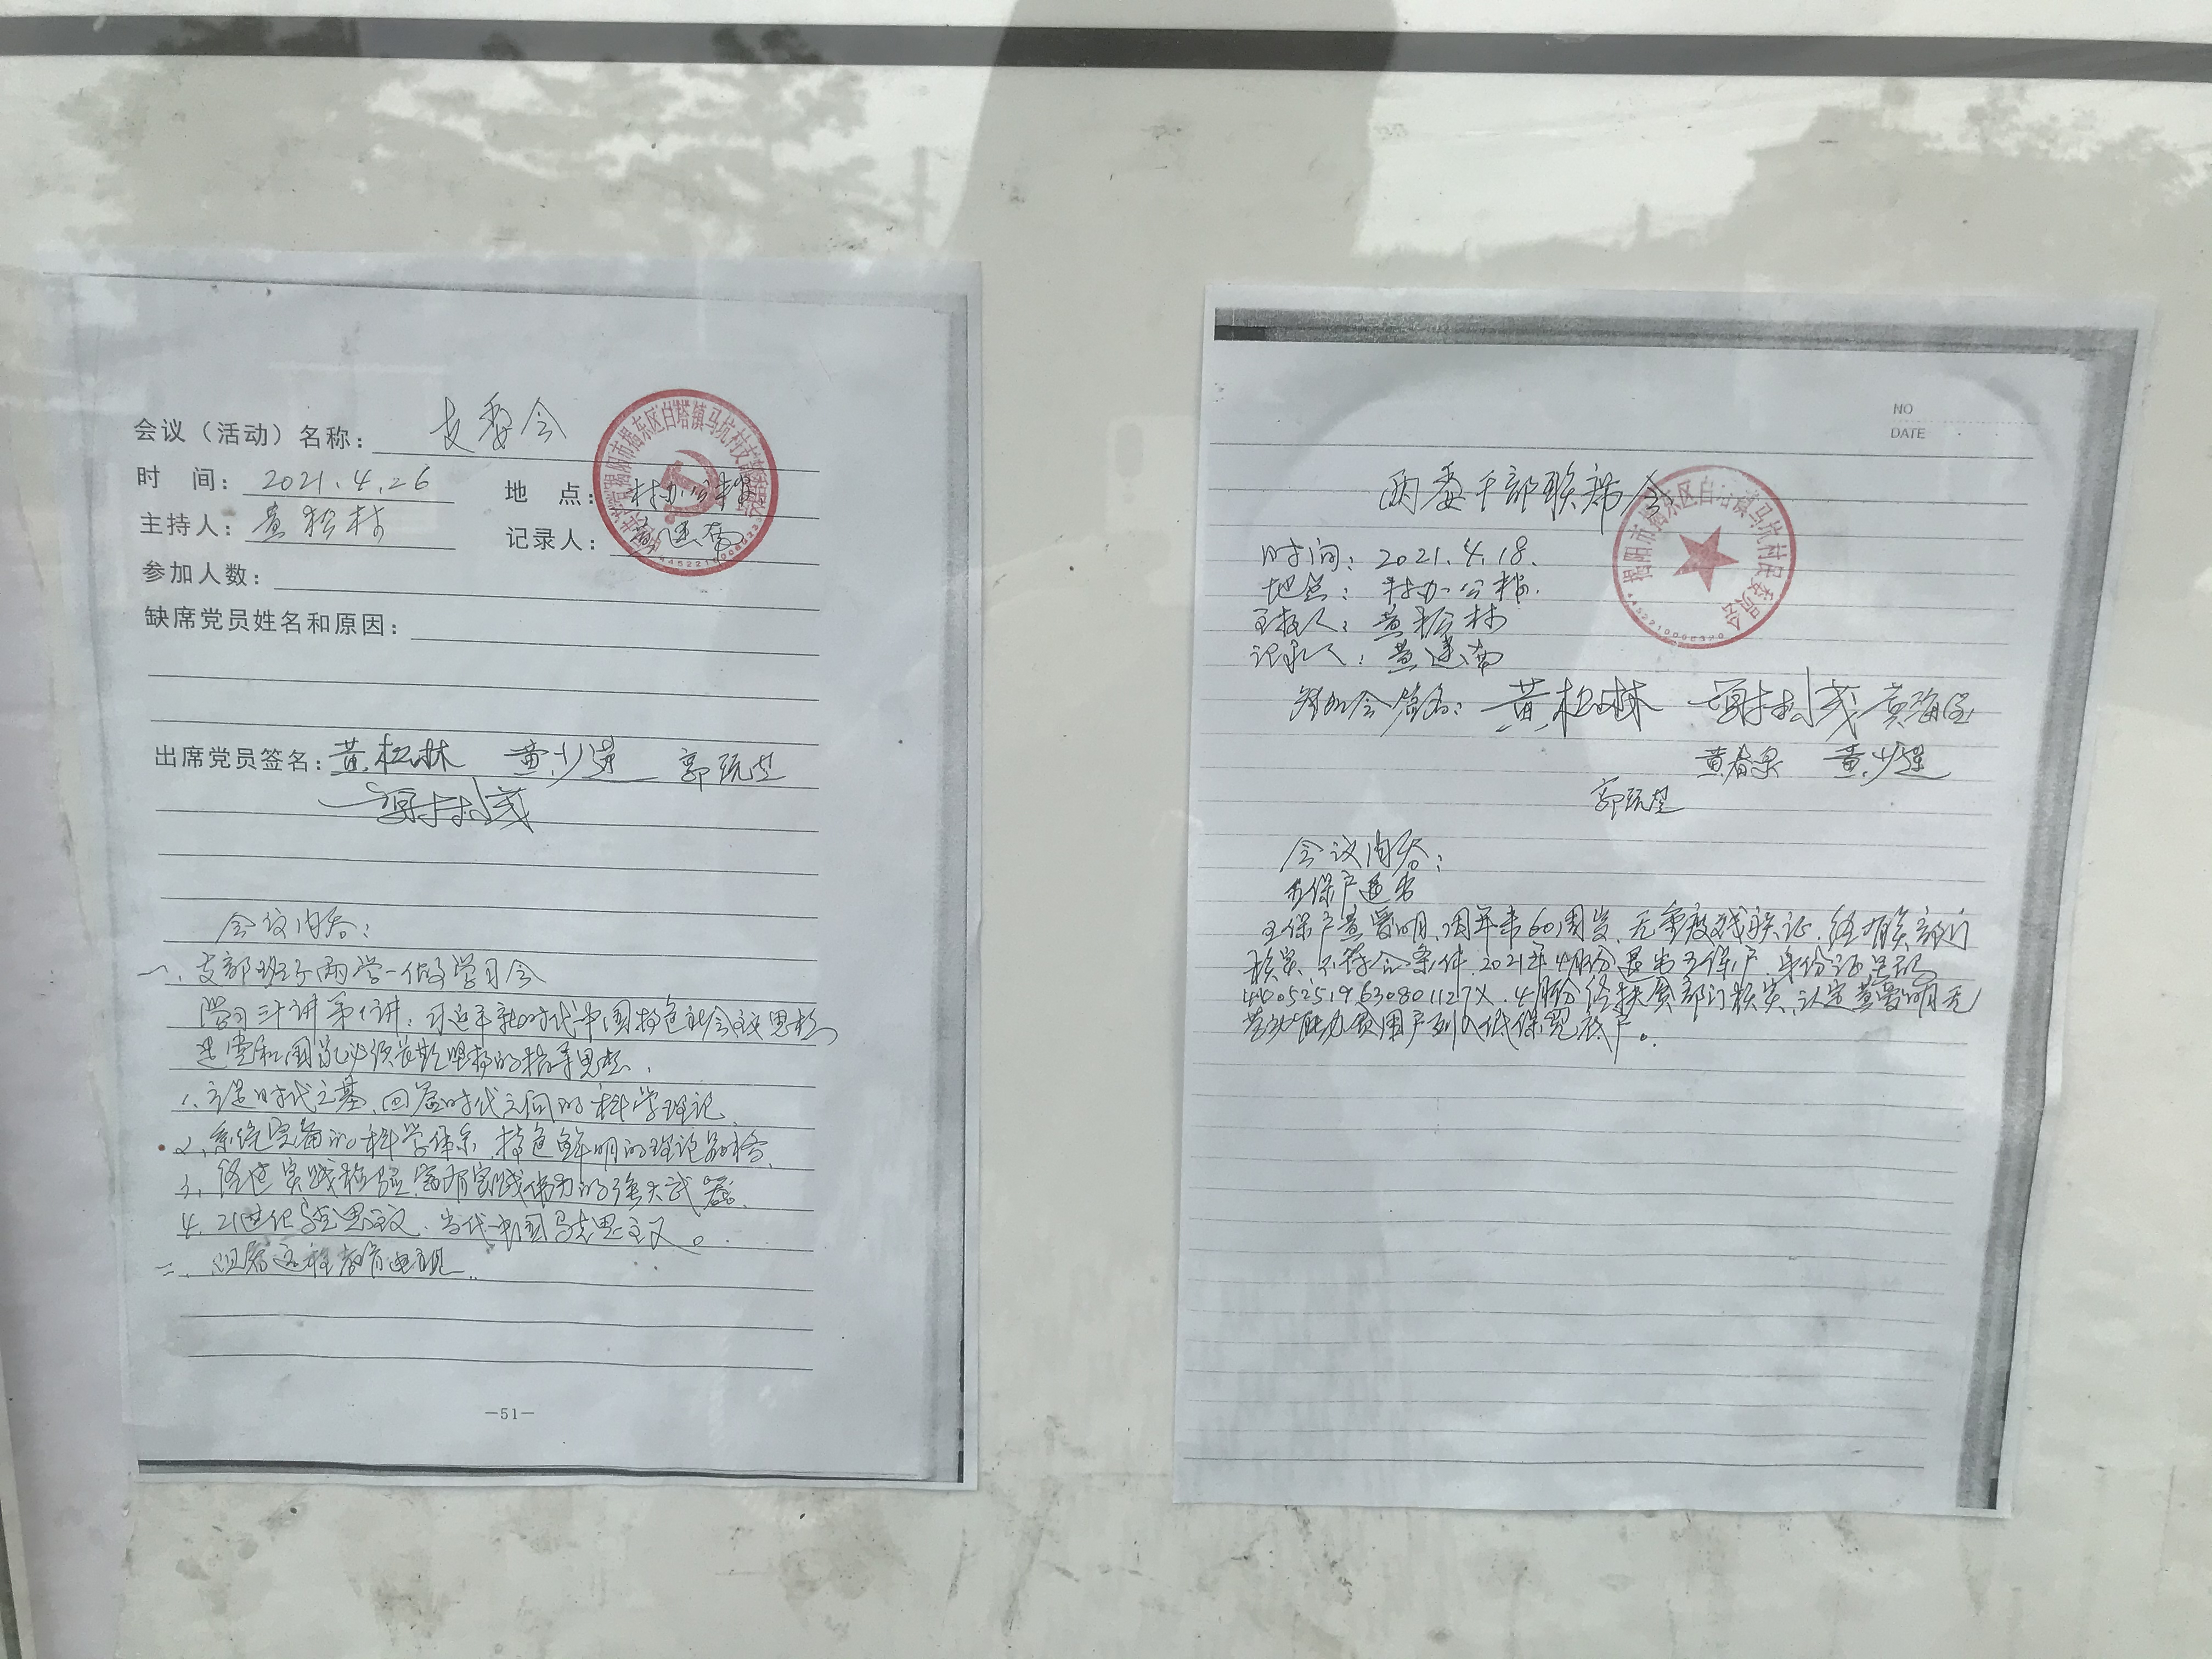 会议（活动）名称：支委会
时 间：2021.4.26 地 点：村办公楼
主持人：黄松林 记录人：黄进南
参加人数：
缺席党员姓名和原因：
出席党员签名：黄松林 黄少进 郭
会议内容：
一、支部班子两学一做学习会
学习三十讲第1讲：习近平新时代中国特色社会主义思想
是党和国家必须长期坚持的指导思想.
1、立足时代之基、回答时代之问的科学理论
2、系统完备的科学体系、特色鲜明的理论品格、
3、经过实践检验、富有实践伟力的强大武器、
4、21世纪马克思主义、当代中国马克思主义。
二、组看远程教育电视
—51—
中国共产党揭阳市揭东区白塔镇马坑村支部委员会
NO
DATE
两委干部联席会
时间：2021.4.18.
地点：村办公楼.
主持人：黄松林
记录人：黄进南
参加会签名：黄松林 黄海
黄春泉 黄少进
郭
会议内容：
五保户退出
五保户黄爱明、周年未60周岁、无重度残疾证、经有关部门
核实、不符合条件、2021年4月份退出五保户、身份证号码
44052519630801127X.4月份经扶贫部门核实、认定黄爱明无
劳动能力贫困户列入低保兜底户。
揭阳市揭东区白塔镇马坑村民委员会